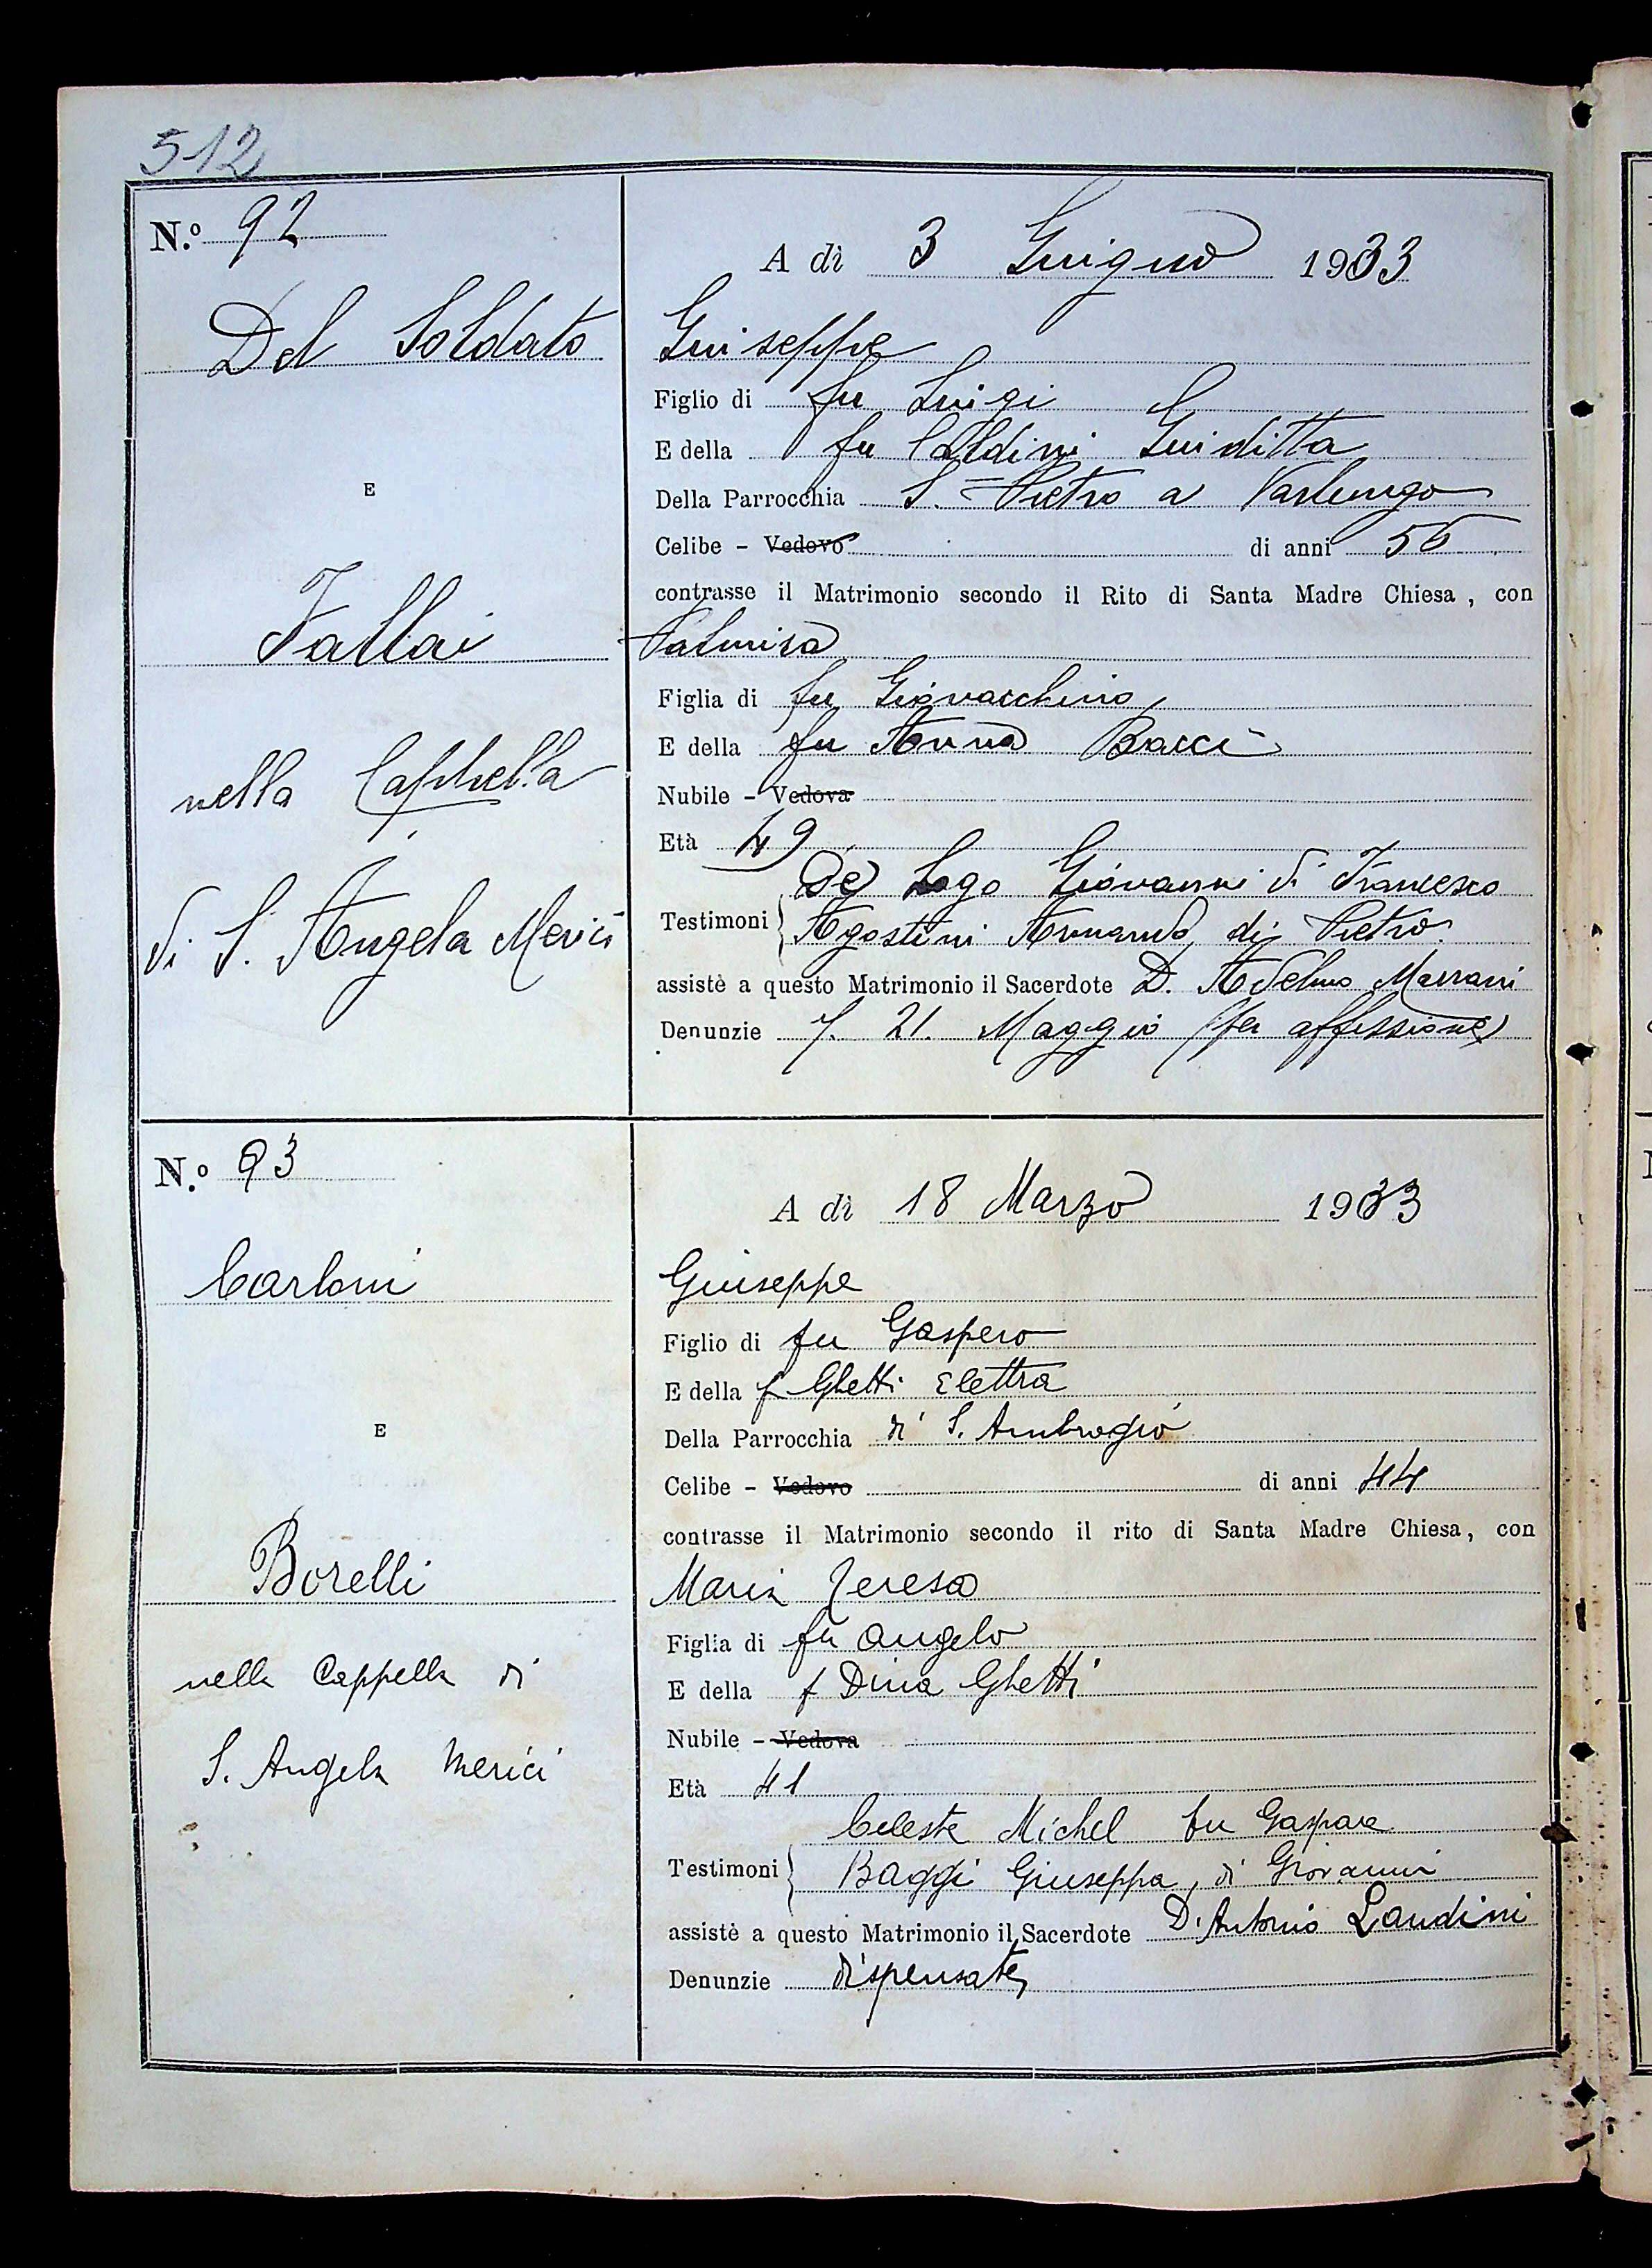 512
N.º 92
A dì 3 Giugno 1933
Del Soldato
Giuseppe
Figlio di fu Luigi
E della fu Giuditta
Della Parrocchia S. Pietro a Varlungo
E
Celibe - Vedovo di anni 56
contrasse il Matrimonio secondo il Rito di Santa Madre Chiesa, con
Fallai
Palmira
Figlia di fu Giovacchino
E della fu Anna Bacci
nella Cappella
Nubile - Vedova
Età 49
di S. Angela Merici
De Lago Giovanni di Francesco
Testimoni Agostini Armando di Pietro
assistè a questo Matrimonio il Sacerdote D. Adelmo
Denunzie 1. 21. Maggio (per affissione)
N.º 93
A dì 18 Marzo 1933
Carloni
Giuseppe
Figlio di fu Gaspero
E della f Ghetti Elettra
E
Della Parrocchia di S. Ambrogio
Celibe - Vedovo di anni 44
contrasse il Matrimonio secondo il rito di Santa Madre Chiesa, con
Borelli
Maria Teresa
Figlia di fu Angelo
nella Cappella di
E della f Dina Ghetti
Nubile - Vedova
S. Angela Merici
Età 41
Celeste Michel fu Gaspare
Testimoni Baggi Giuseppa, di Giovanni
assistè a questo Matrimonio il Sacerdote D. Antonio Landini
Denunzie dispensate